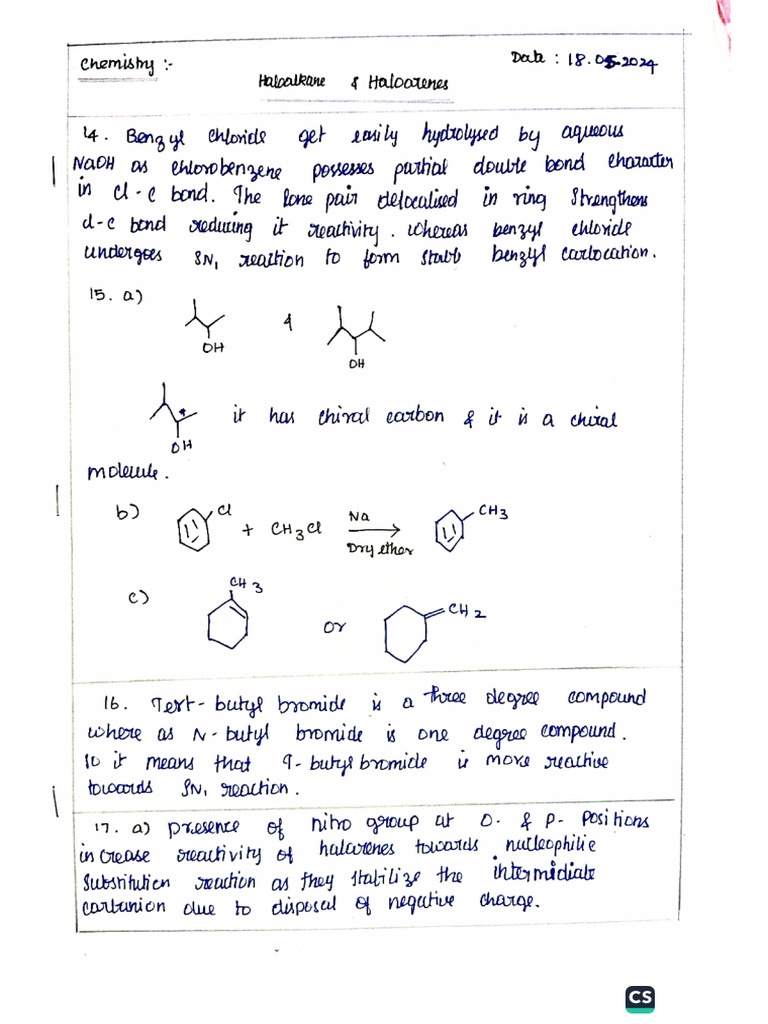 Chemistry :-
Date : 18.05.2024
Haloalkane & Haloarenes
14. Benzyl chloride get easily hydrolysed by aqueous
NaOH as chlorobenzene possesses partial double bond character
in Cl-C bond. The lone pair delocalised in ring strengthens
Cl-C bond reducing it reactivity. Whereas benzyl chloride
undergoes SN1 reaction to form stable benzyl carbocation.
15. a)
&
OH
OH
* it has chiral carbon & it is a chiral
OH
molecule.
b) Cl + CH3Cl Na Dry ether CH3
c) CH3 or CH2
16. Tert-butyl bromide is a three degree compound
where as N-butyl bromide is one degree compound.
So it means that T-butyl bromide is more reactive
towards SN1 reaction.
17. a) Presence of nitro group at O- & P- positions
increase reactivity of halarenes towards nucleophilic
substitution reaction as they stabilize the intermidiate
carbanion due to disposal of negative charge.
CS